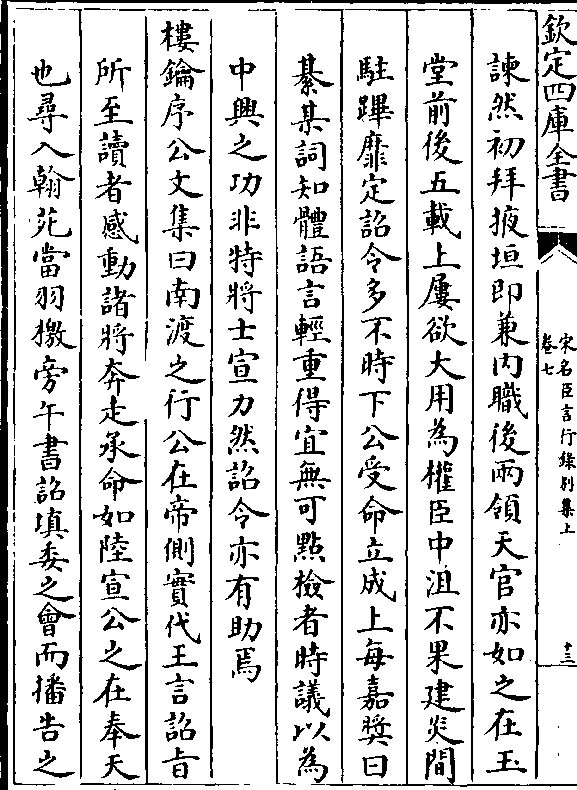 欽定四庫全書
宋名臣言行錄別集上
卷七
十三
諫然初拜掖垣即兼內職後兩領天官亦如之在玉
堂前後五載上屢欲大用為權臣中沮不果建炎間
駐蹕靡定詔令多不時下公受命立成上每嘉獎曰
綦某詞知體語言輕重得宜無可點檢者時議以為
中興之功非特將士宣力然詔令亦有助焉
樓鑰序公文集曰南渡之行公在帝側實代王言詔旨
所至讀者感動諸將奔走承命如陸宣公之在奉天
也尋入翰苑當羽檄旁午書詔填委之會而播告之